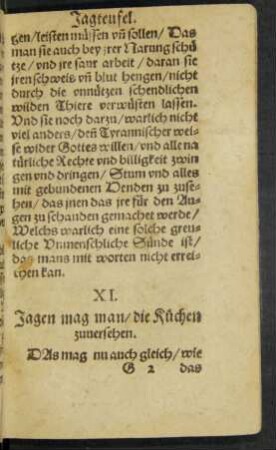 Jagteufel.
tzen/leisten müssen vñ sollen/Das
man sie auch bey jrer Narung schü
tze/vnd jre saur arbeit/daran sie
jren schweis vñ blut hengen/nicht
durch die vnnützen schendlichen
wilden Thiere verwüsten lassen.
Vnd sie noch darzu/warlich nicht
viel anders/deñ Tyrannischer wei-
se wider Gottes willen/vnd alle na
türliche Rechte vnd billigkeit zwin
gen vnd dringen/Stum vnd alles
mit gebundenen Henden zu zuse-
hen/das jnen das jre für den Au-
gen zu schanden gemachet werde/
Welchs warlich eine solche greu-
liche Vnmenschliche Sünde ist/
das mans mit worten nicht errei-
chen kan.
XI.
Jagen mag man/die Küchen
zuuersehen.
DAs mag nu auch gleich/wie
G 2 das